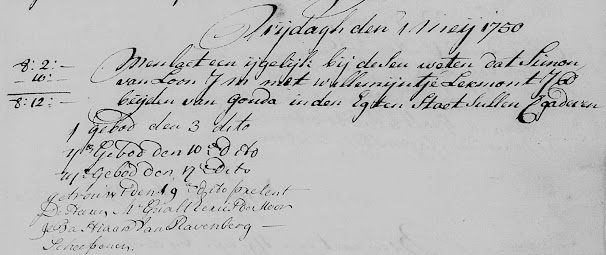 Vrijdagh den 1 Meij 1750
8:2:— Men laet een ijgelijk bij desen weten dat Simon
10:— van Loon J m met Willemijntje Lekmont J d
8:12:— beijden van gouda in den Egten Staet Sullen
1 gebod den 3 dito
2 Gebod den 10 Dito
3 Gebod den 17 Dito
getrouwt den 19 Dito present
De Heeren Mr
Bastiaan Van Ravenberg —
Scheepenen